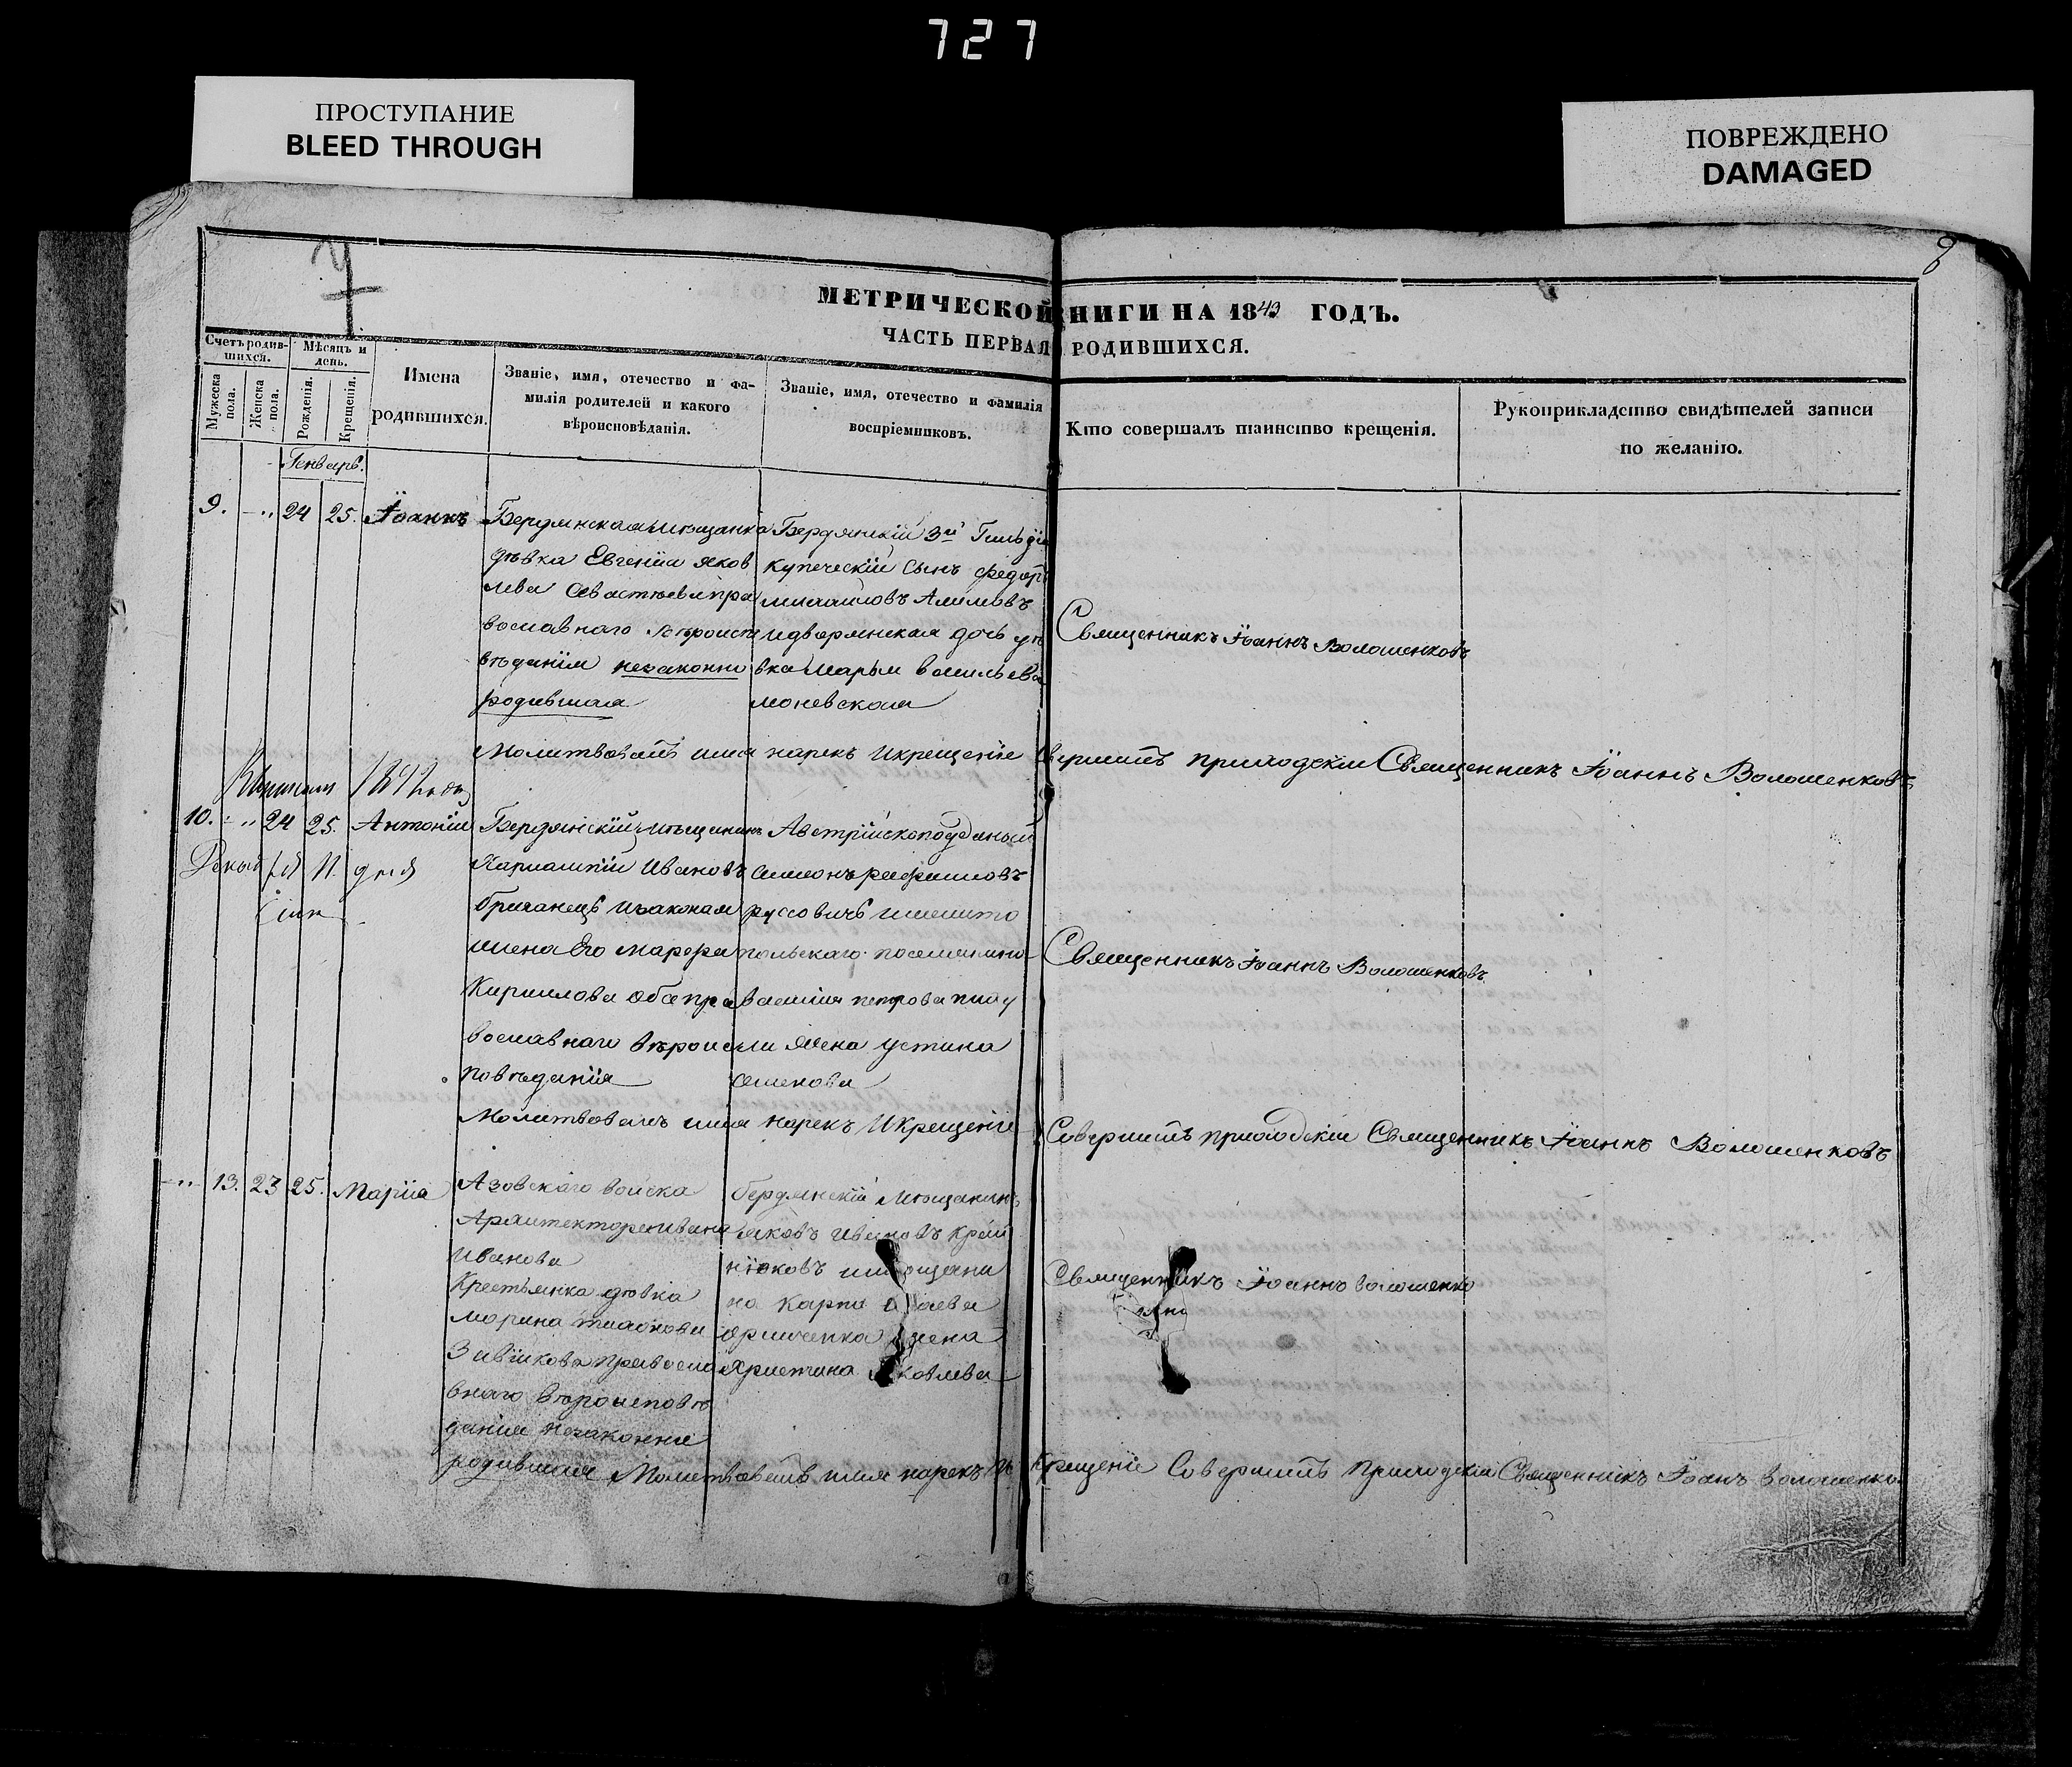 727
ПРОСТУПАНИЕ
BLEED THROUGH
ПОВРЕЖДЕНО
DAMAGED
8
МЕТРИЧЕСКОЙ КНИГИ НА 1843 ГОДЪ.
ЧАСТЬ ПЕРВАЯ РОДИВШИХСЯ.
Счетъ родившихся.
Мужеска пола.
Женска пола.
Мѣсяцъ и день.
Рожденія.
Крещенія.
Имена родившихся.
Званіе, имя, отечество и фамилія родителей и какого вѣроисновѣданія.
Званіе, имя, отечество и фамилія воспріемниковъ.
Кто совершалъ таинство крещенія.
Рукоприкладство свидѣтелей записи по желанію.
Генварь.
9. 24 25. Іоаннъ
Бердянская мѣщанка
дѣвка Евгенія Яков
лева Севастьева пра
вославнаго вѣроиспо
вѣданія незаконно
родившая
Бердянскій 3й Гильдіи
купеческій сынъ Федоръ
Михаиловъ Алимовъ
идворянская дочь дѣ
вка Марья Васильева
моневская
Священникъ Іоаннъ Волошенковъ
Молитвовалъ имя нарекъ икрещеніе совершилъ приходскій Священникъ Іоаннъ Волошенковъ
1842 года
10. 24 25. Антоній
Бердянскій мѣщанинъ
Иванов
бричанецъ изаконая
жена Его Марфа
Кирилова оба пра
вославнаго вѣроис
повѣданія
Австрійскоподданый
Симонъ
русовичъ имелито
польскаго поселянина
василія петрова
жена устина
семенова
Священникъ Іоаннъ Волошенковъ
Молитвовалъ имя нарекъ Икрещеніе Совершилъ приходскій Священникъ Іоаннъ Волошенковъ
13. 23 25. Марія
Азовскаго войска
Архитектора Ивана
Иванова
Крестьянка дѣвка
Марина тихонова
правосла
внаго вѣроисповѣ
данія незаконно
родившая
Бердянскій Мѣщанинъ
Яковъ Ивановъ Край
нюковъ имѣщани
на Карпа
жена
Христина Яковлева
Священникъ Іоаннъ Волошенко
Молитвовалъ имя нарекъ и Крещеніе Совершилъ Приходскій Священникъ Іоанъ Волошенко